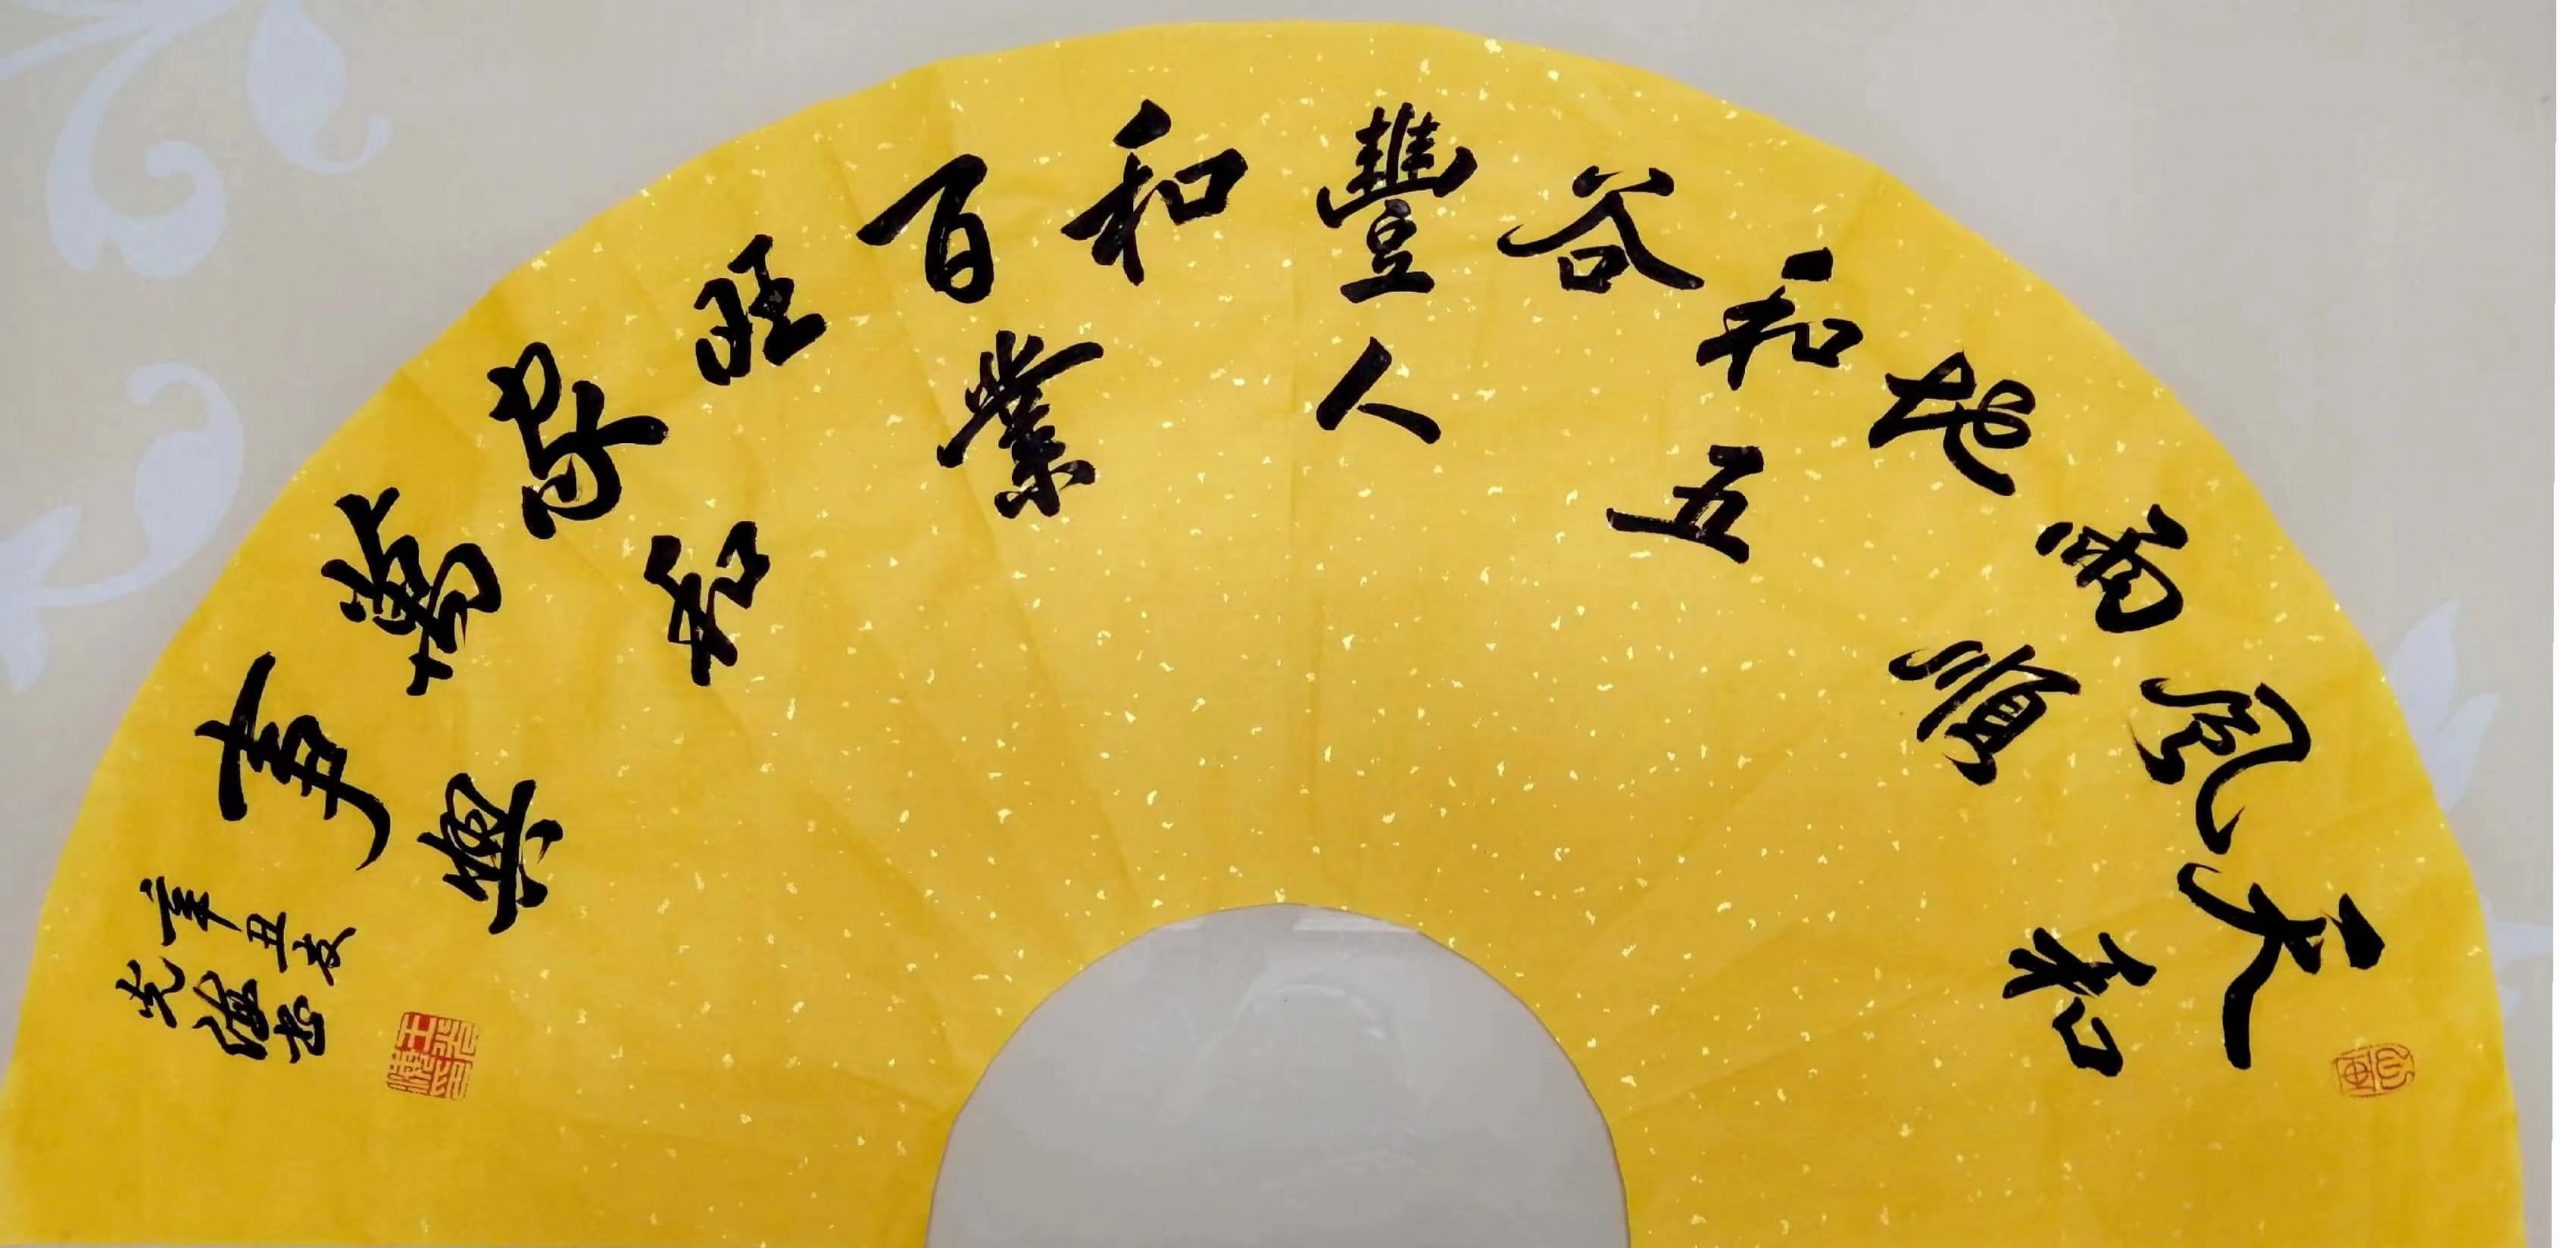 天和
風
雨順
地
和五
谷
豐人
和
百業
旺
家和
萬
事興
辛丑